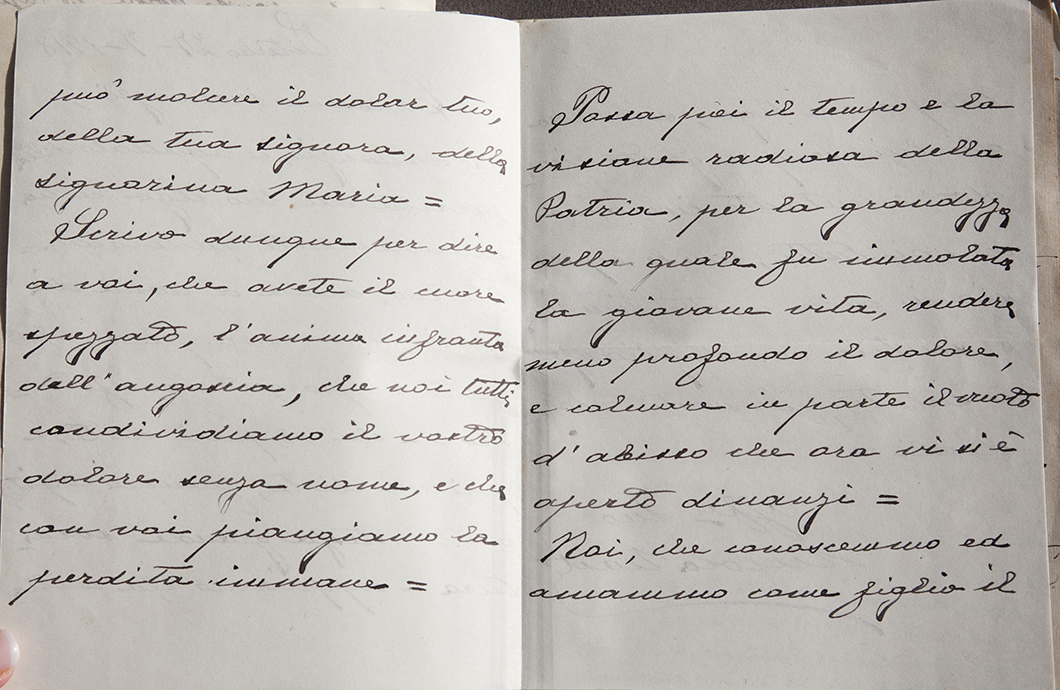 può molcere il dolor tuo,
della tua signora, della
signorina Maria =
Scrivo dunque per dire
a voi, che avete il cuore
spezzato, l'anima infranta
dall'angoscia, che noi tutti
condividiamo il vostro
dolore senza nome, e che
con voi piangiamo la
perdita immane =
Possa poi il tempo e la
visione radiosa della
Patria, per la grandezza
della quale fu immolata
la giovane vita, rendere
meno profondo il dolore,
e colmare in parte il vuoto
d'abisso che ora vi si è
aperto dinanzi =
Noi, che conoscemmo ed
amammo come figlio il